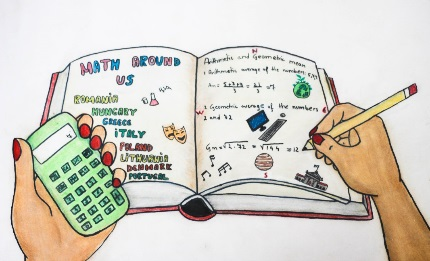 MATH AROUND
US
ROMANIA
HUNGARY
GREECE
ITALY
POLAND
LITHUANIA
DENMARK
PORTUGAL
and Geometric mean
1 Arithmetic average of the numbers:
2 Geometric average of the numbers
2 and 72
Gm = √2·72 = √144 = 12